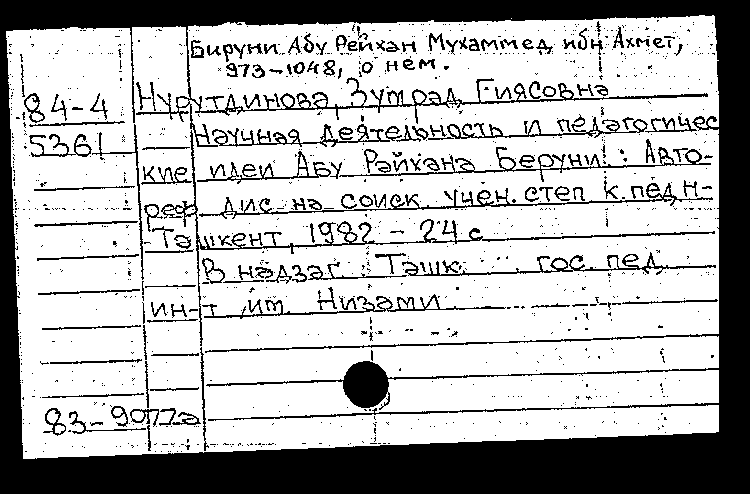 Бируни Абу Рейхан Мухаммед ибн Ахмет,
973-1048, о нем.
84-4 Нурутдинова, Зумрад Гиясовна
5361 Научная деятельность и педагогичес
кие идеи Абу Райхана Беруни : Авто-
реф. дис. на соиск. учен. степ. к. пед. н-
Ташкент, 1982 - 24 с
В надзаг. : Ташк. гос. пед.
ин-т им. Низами
83-9077а